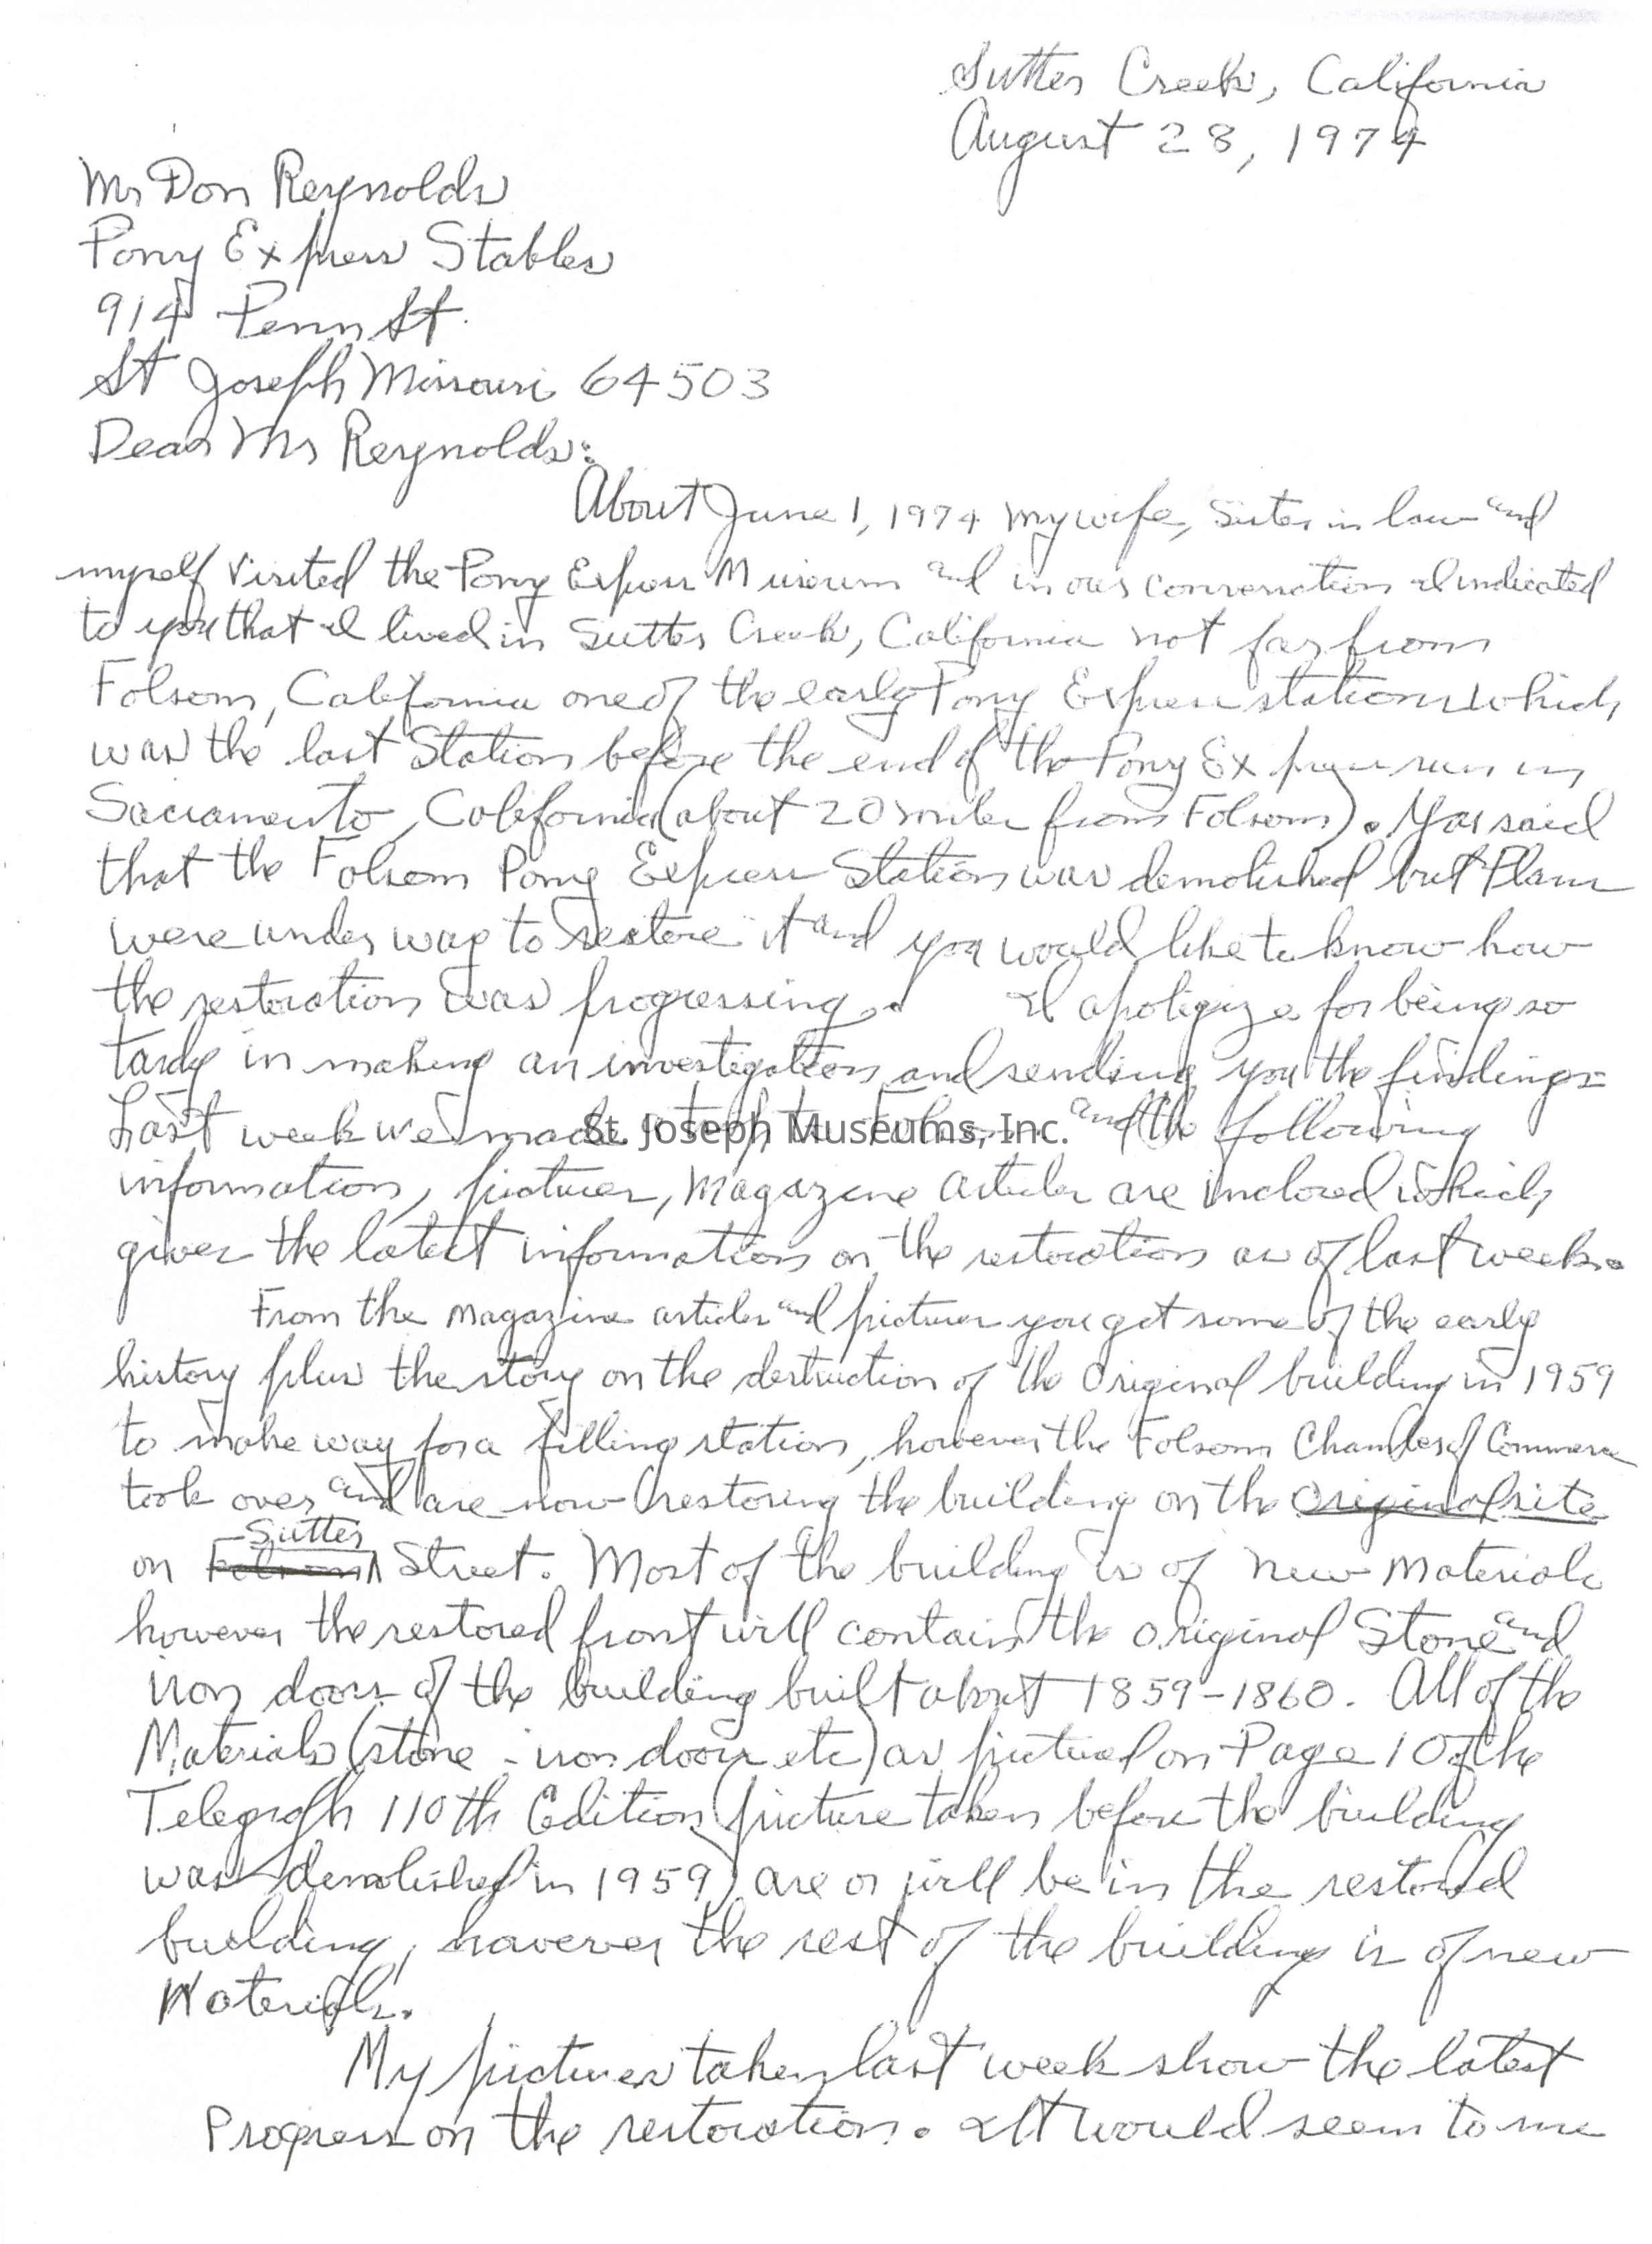 Sutter Creek, California
August 28, 1974
Mr Don Reynolds
Pony Express Stables
914 Penn St.
St Joseph Missouri 64503
Dear Mr Reynolds:
About June 1, 1974 my wife, Sister in law and
myself visited the Pony Express Museum and in our conversation I indicated
to you that I lived in Sutter Creek, California not far from
Folsom, California one of the early Pony Express stations which
was the last Station before the end of the Pony Express run in
Sacramento, California (about 20 miles from Folsom). You said
that the Folsom Pony Express Station was demolished but Plans
were under way to restore it and you would like to know how
the restoration was progressing. I apologize for being so
tardy in making an investigation and sending you the findings
Last week we made a trip to Folsom and the following
St. Joseph Museums, Inc.
information, pictures, Magazine articles are inclosed which
gives the latest information on the restoration as of last week.
From the Magazine articles and pictures you get some of the early
history plus the story on the destruction of the Original building in 1959
to make way for a filling station, however the Folsom Chamber of Commerce
took over and are now restoring the building on the Original site
on Folsom Sutter Street. Most of the building is of new Materials
however the restored front will contain the original Stone and
iron doors of the building built about 1859-1860. All of the
Materials (stone - iron doors etc) as pictured on Page 10 of the
Telegraph 110th Edition (picture taken before the building
was demolished in 1959) are or will be in the restored
building, however the rest of the building is of new
Materials.
My pictures taken last week show the latest
Progress on the restoration. It would seem to me